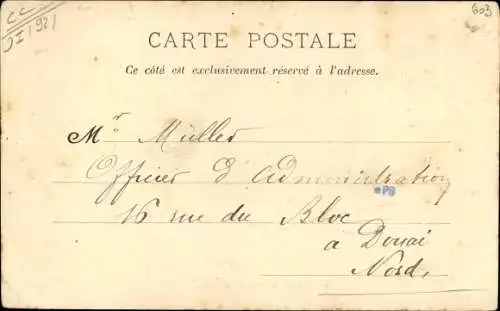 603
CARTE POSTALE
Ce côté est exclusivement réservé à l'adresse.
Mr Müller
Officier d'administration
PB
16 rue du Bloc
à Douai
Nord,